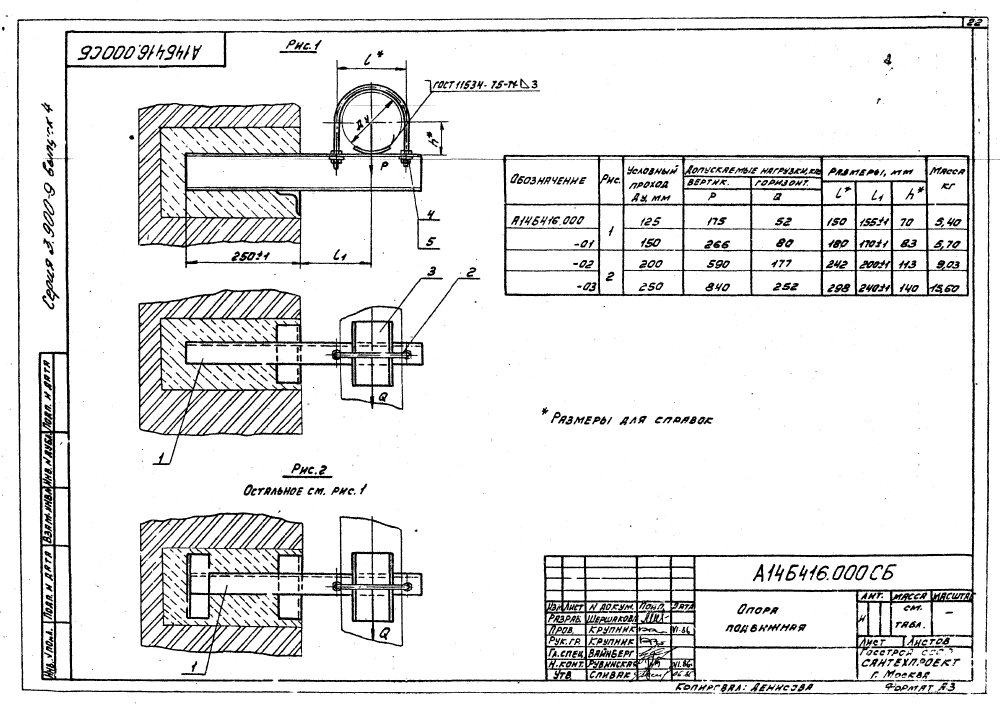 22
А14Б416.000СБ
Серия 3.900-9 выпуск 4
Рис.1
L*
ГОСТ 11534-75-Т1-◺3
Ду
h*
P
4
5
250±1
L1
3
2
Q
1
Рис.2
Остальное см. рис. 1
Q
1
Обозначение Рис. Условный проход Ду, мм Допускаемые нагрузки, кгс Размеры, мм Масса кг
вертик. P горизонт. Q L* L1 h*
А14Б416.000 1 125 175 52 150 155±1 70 5,40
-01 150 266 80 180 170±1 83 5,70
-02 2 200 590 177 242 200±1 113 9,03
-03 250 840 252 298 240±1 140 13,60
* Размеры для справок
Инв.№ подл. Подп. и дата Взам.инв.№ Инв.№ дубл. Подп. и дата
А14Б416.000СБ
Изм Лист № докум. Подп. Дата
Разраб. Шершакова
Пров. Крупник VI.86
Рук.гр. Крупник
Гл.спец. Вайнберг
Н.конт. Рувинская VI.86
Утв. Спивак
Опора
подвижная
Лит. Масса Масштаб
И см. табл. –
Лист Листов
Госстрой СССР
САНТЕХПРОЕКТ
г. Москва
Копировал: Денисова
Формат А3